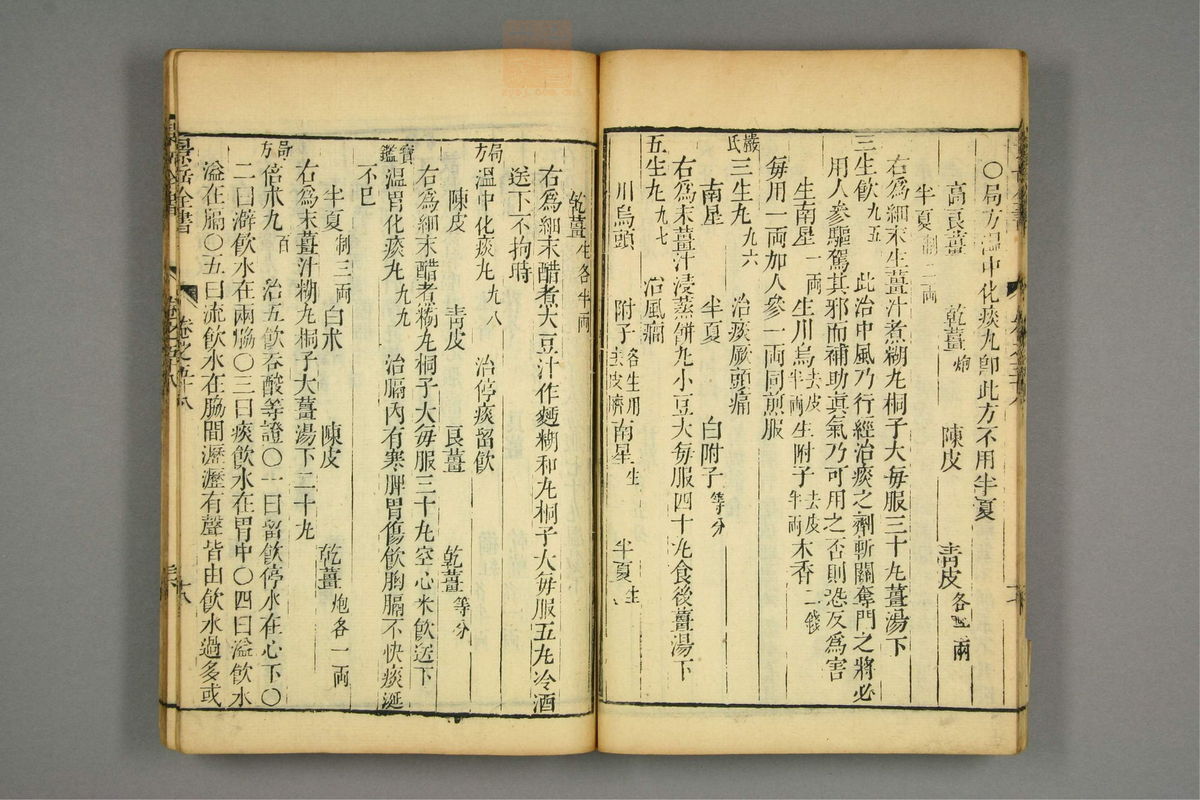 〇局方温中化痰丸卽此方不用半夏
高良薑 乾薑炮 陳皮 靑皮各 兩
半夏制二両
右為細末生薑汁煮糊丸桐子大每服三十丸薑湯下
三生飲九五 此治中風乃行經治痰之劑斬關奪門之將必
用人參驅駕其邪而補助真氣乃可用之否則恐反為害
生南星一両 生川烏去皮半両 生附子去皮半両 木香二錢
每用一両加人參一両同煎服
嚴氏三生丸九六 治痰厥頭痛
南星 半夏 白附子等分
右為末薑汁浸蒸餅丸小豆大每服四十丸食後薑湯下
五生丸九七 治風癎
川烏頭 附子各生用去皮臍 南星生 半夏生
乾薑生各半両
右為細末醋煮大豆汁作麵糊和丸桐子大每服五丸冷酒
送下不拘時
局方温中化痰丸九八 治停痰留飲
陳皮 靑皮 良薑 乾薑等分
右為細末醋煮糊丸桐子大每服三十丸空心米飲送下
寶鑑温胃化痰丸九九 治膈內有寒脾胃傷飲胸膈不快痰涎
不已
半夏制三両 白朮 陳皮 乾薑炮各一両
右為末薑汁糊丸桐子大薑湯下二十丸
局方倍朮丸百 治五飲吞酸等證〇一曰留飲停水在心下〇
二曰澼飲水在兩脇〇三曰痰飲水在胃中〇四曰溢飲水
溢在膈〇五曰流飲水在脇間瀝瀝有聲皆由飲水過多或
景岳全書 卷之五十八 十八